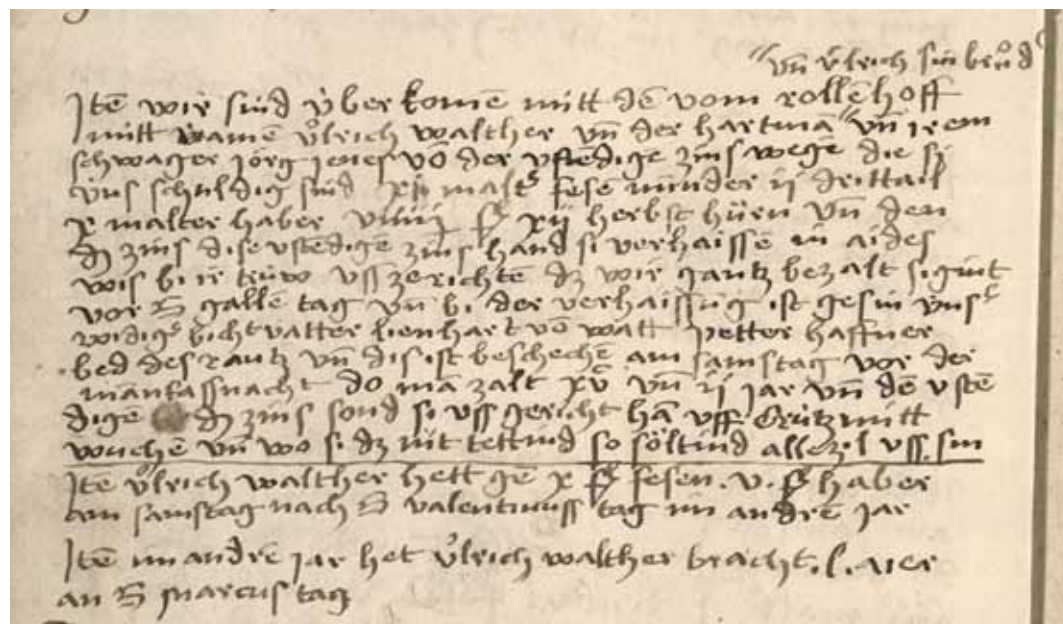 vn̄ vͦlrich sin brůd
Itē wir sind v̈berkomē mitt dē vom rollēhoff
mitt namē vͦlrich walther vn̄ der hartmā vn̄ irem
schwager jörg jenes vō der vstēdigē zins wegē die si
v̈ns schuldig sind xij malt fesē minder ij drittail
x malter haber viiij ß xij herbst hu̇rn vn̄ den
dz zins dise vstēdigē zins hand si verhaissē in aides
wis bi ir trüw vss zerichtē dz wir gantz bezalt sigint
vor S gallē tag vn̄ bi der verhaissūg ist gesin v̈ns
wirdig bichtvatter lienhart vō watt petter haffner
bed des rautz vn̄ dis ist beschechē am samstag vor der
manfassnacht do mā zalt xv vn̄ ij jar vn̄ dē vstē
digē zins sond si vss gericht hā vff Crütz mitt
wuchē vn̄ wo si dz nit tettind so söltind alle zil vss sin
Itē vͦlrich walther hett gē x fesen . v . haber
am samstag nach S valentinuss tag im andrē jar
Itē im andrē jar het vͦlrich walther bracht . l . aier
an S marcus tag